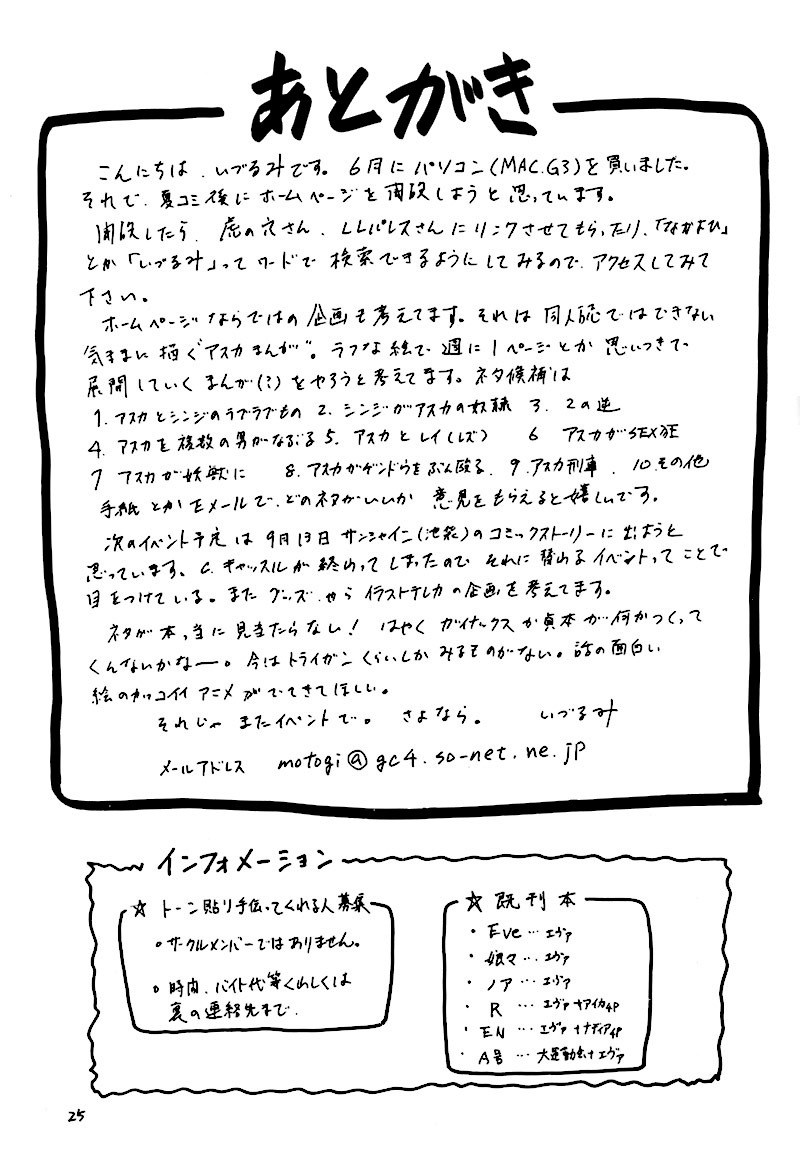 あとがき
こんにちは、いづるみです。6月にパソコン(MAC.G3)を買いました。
それで、夏コミ後にホームページを開設しようと思っています。
開設したら、虎の穴さん、LLパレスさんにリンクさせてもらったり、「なかよひ」
とか「いづるみ」ってワードで検索できるようにしてみるので、アクセスしてみて
下さい。
ホームページならではの企画も考えてます。それは同人誌ではできない
気ままに描く"アスカまんが"。ラフな絵で週に1ページとか思いつきで
展開していくまんが(?)をやろうと考えてます。ネタ候補は
1.アスカとシンジのラブラブもの 2.シンジがアスカの奴隷 3.2の逆
4.アスカを複数の男がなぶる 5.アスカとレイ(レズ) 6 アスカがSEX狂
7 アスカが妖獣に 8.アスカがゲンドウをぶん殴る 9.アスカ刑事 10.その他
手紙とかEメールで、どのネタがいいか意見をもらえると嬉しいです。
次のイベント予定は9月13日サンシャイン(池袋)のコミックストーリーに出ようと
思っています。C.キャッスルが終わってしまったので それに替わるイベントってことで
目をつけている。またグッズやらイラストテレカの企画を考えてます。
ネタが本当に見当たらない! はやくガイナックスか貞本が何かつくって
くんないかなー。今はトライガンくらいしかみるものがない。話の面白い
絵のカッコイイアニメがでてきてほしい。
それじゃまたイベントで。さよなら。 いづるみ
メールアドレス motogi@gc4.so-net.ne.jp
インフォメーション
☆トーン貼り手伝ってくれる人募集
・サークルメンバーではありません。
・時間、バイト代等くわしくは
裏の連絡先まで.
☆既刊本
・Eve…エヴァ
・娘々…エヴァ
・ノア…エヴァ
・R …エヴァ+アイカ4P
・EN …エヴァ+ナディア4P
・A号 …大運動会+エヴァ
25